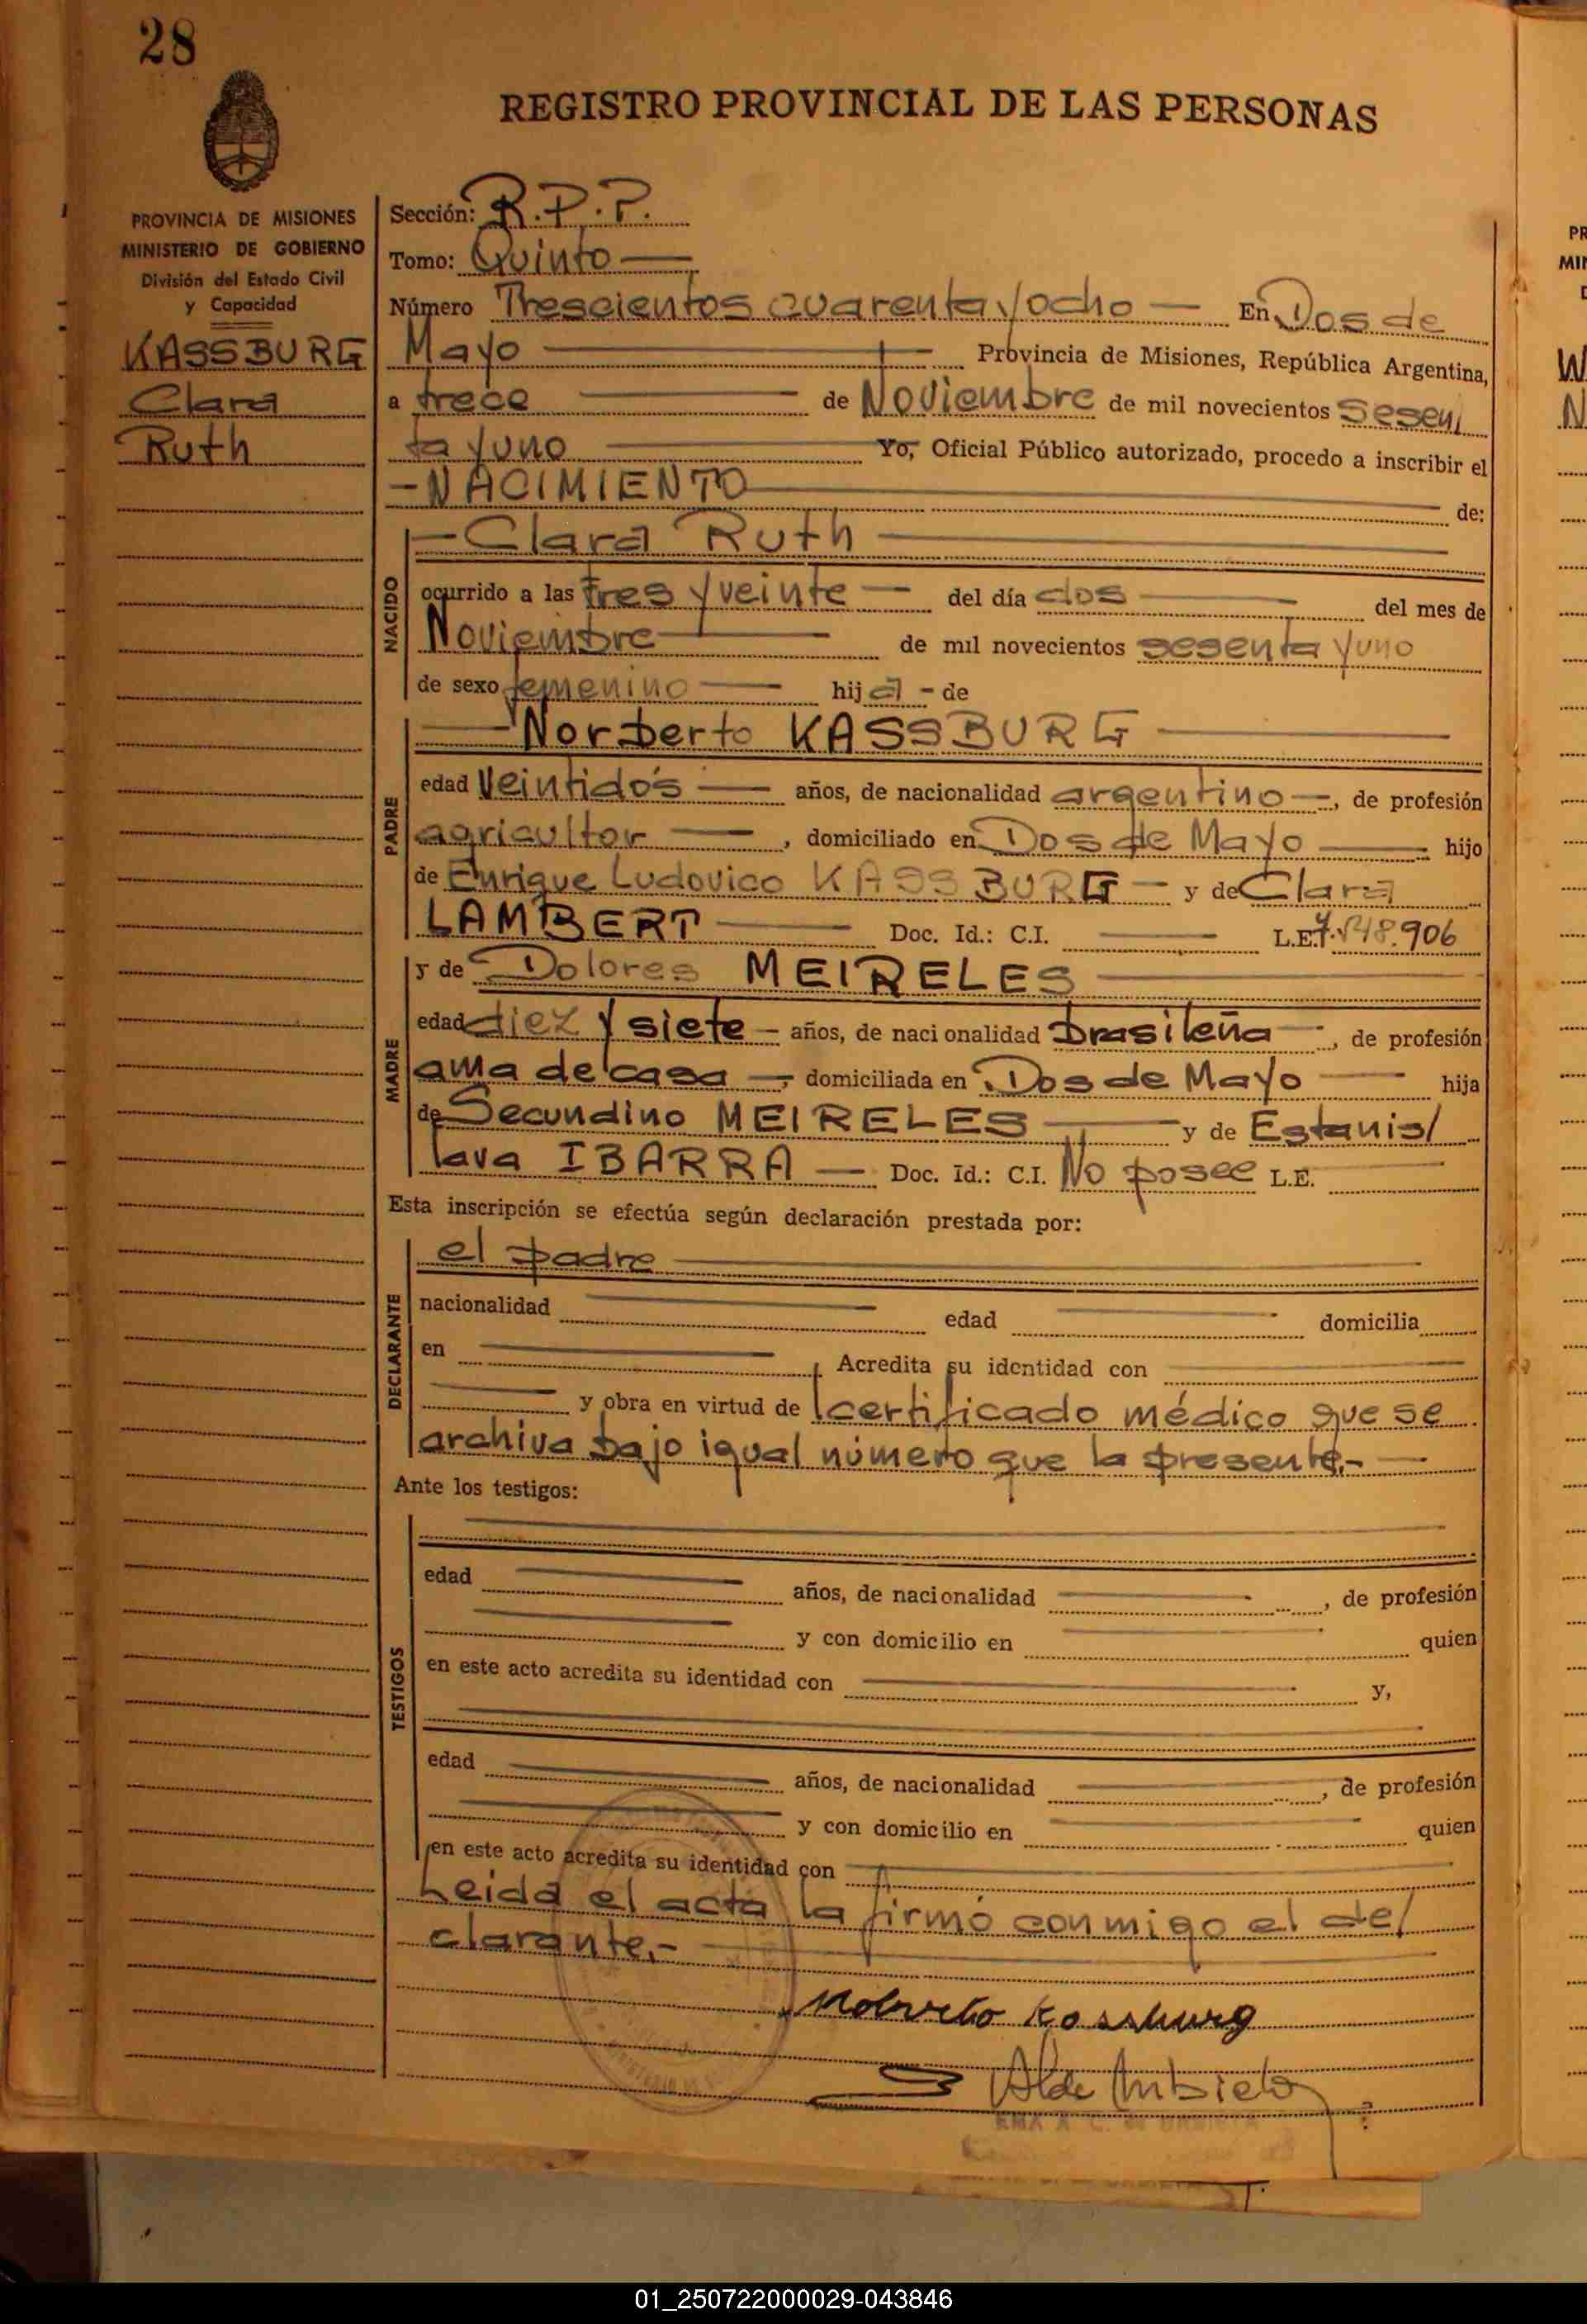 28
REGISTRO PROVINCIAL DE LAS PERSONAS
PROVINCIA DE MISIONES
MINISTERIO DE GOBIERNO
División del Estado Civil
y Capacidad
KASSBURG
Clara
Ruth
Sección: R.P.P.
Tomo: Quinto
Número Trescientos cuarenta y ocho En Dos de
Mayo Provincia de Misiones, República Argentina,
a trece de Noviembre de mil novecientos sesen
ta y uno Yo, Oficial Público autorizado, procedo a inscribir el
-NACIMIENTO de:
NACIDO
-Clara Ruth
ocurrido a las tres y veinte del día dos del mes de
Noviembre de mil novecientos sesenta y uno
de sexo femenino hija - de
PADRE
Norberto KASSBURG
edad Veintidós años, de nacionalidad argentino, de profesión
agricultor, domiciliado en Dos de Mayo hijo
de Enrique Ludovico KASSBURG y de Clara
LAMBERT Doc. Id.: C.I. L.E. 906
MADRE
y de Dolores MEIRELES
edad diez y siete años, de nacionalidad brasileña, de profesión
ama de casa, domiciliada en Dos de Mayo hija
de Secundino MEIRELES y de Estanis/
lava IBARRA Doc. Id.: C.I. No posee L.E.
Esta inscripción se efectúa según declaración prestada por:
DECLARANTE
el padre
nacionalidad edad domicilia
en Acredita su identidad con
y obra en virtud de certificado médico que se
archiva bajo igual número que la presente.-
Ante los testigos:
TESTIGOS
edad años, de nacionalidad, de profesión
y con domicilio en quien
en este acto acredita su identidad con y,
edad años, de nacionalidad, de profesión
y con domicilio en quien
en este acto acredita su identidad con
Leida el acta la firmó conmigo el de/
clarante.-
Norberto Kassburg
01_250722000029-043846